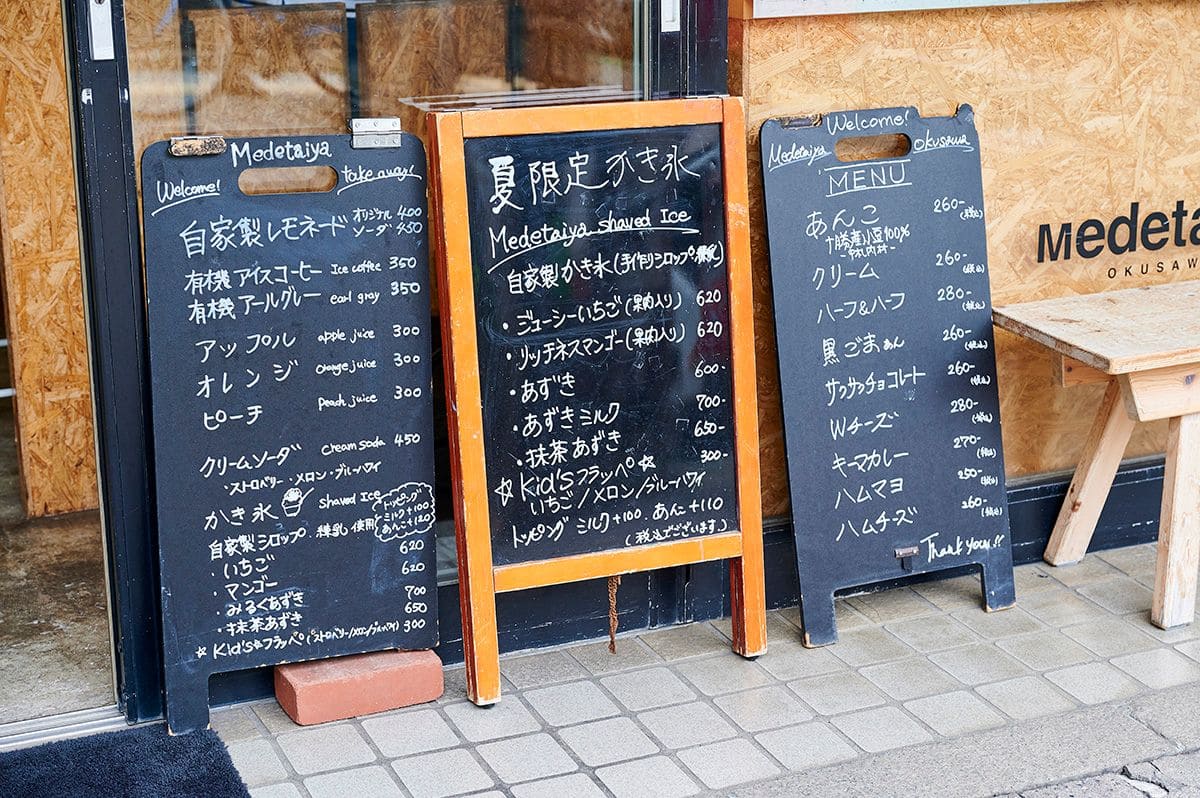 Medetaiya
Welcome! take away!
自家製レモネード オリジナル 400
ソーダ 450
有機 アイスコーヒー Ice coffee 350
有機 アールグレー earl gray 350
アップル apple juice 300
オレンジ Orange juice 300
ピーチ peach juice 300
クリームソーダ cream soda 450
・ストロベリー・メロン・ブルーハワイ
かき氷 shaved Ice
トッピング
ミルク+100
あんこ+120
自家製シロップ・練乳使用
・いちご 620
・マンゴー 620
・みるくあずき 700
・抹茶あずき 650
☆Kid'sフラッペ(ストロベリー/メロン/ブルーハワイ) 300
夏限定かき氷
Medetaiya shaved Ice
自家製かき氷(手作りシロップ・練乳)
・ジューシーいちご(果肉入り) 620
・リッチネスマンゴー(果肉入り) 620
・あずき 600-
・あずきミルク 700-
・抹茶あずき 650-
☆Kid'sフラッペ☆ 300-
いちご/メロン/ブルーハワイ
トッピング ミルク+100、あんこ+110
(税込でございます。)
Welcome!
Medetaiya Okusawa
MENU
あんこ 260-(税込)
十勝産小豆100%
-中札内村-
クリーム 260-(税込)
ハーフ&ハーフ 280-(税込)
黒ごまあん 260-(税込)
サクサクチョコレート 260-(税込)
Wチーズ 280-(税込)
キーマカレー 270-(税込)
ハムマヨ 250-(税込)
ハムチーズ 260-(税込)
Thank you!!
Medeta
OKUSAW